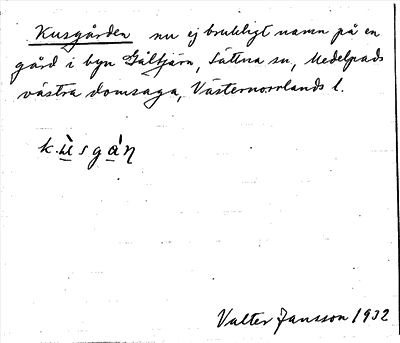 Kusgården nu ej brukligt namn på en
gård i byn Gåltjärn, Sättna sn, Medelpads
västra domsaga, Västernorrlands l.
k.ù̱sgá̱ɳ
Valter Jansson 1932